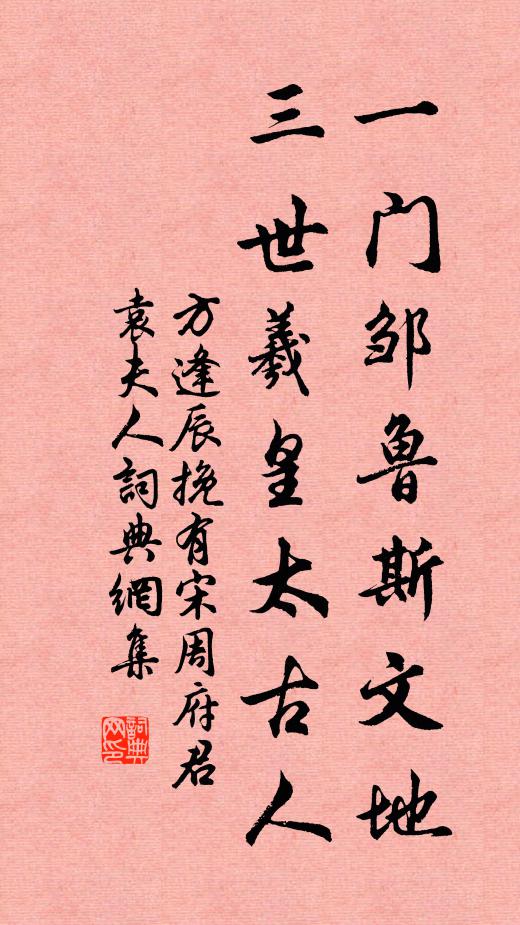 一门邹鲁斯文地
三世羲皇太古人
方逢辰挽有宋周府君
袁夫人詞典網集
詞典网印